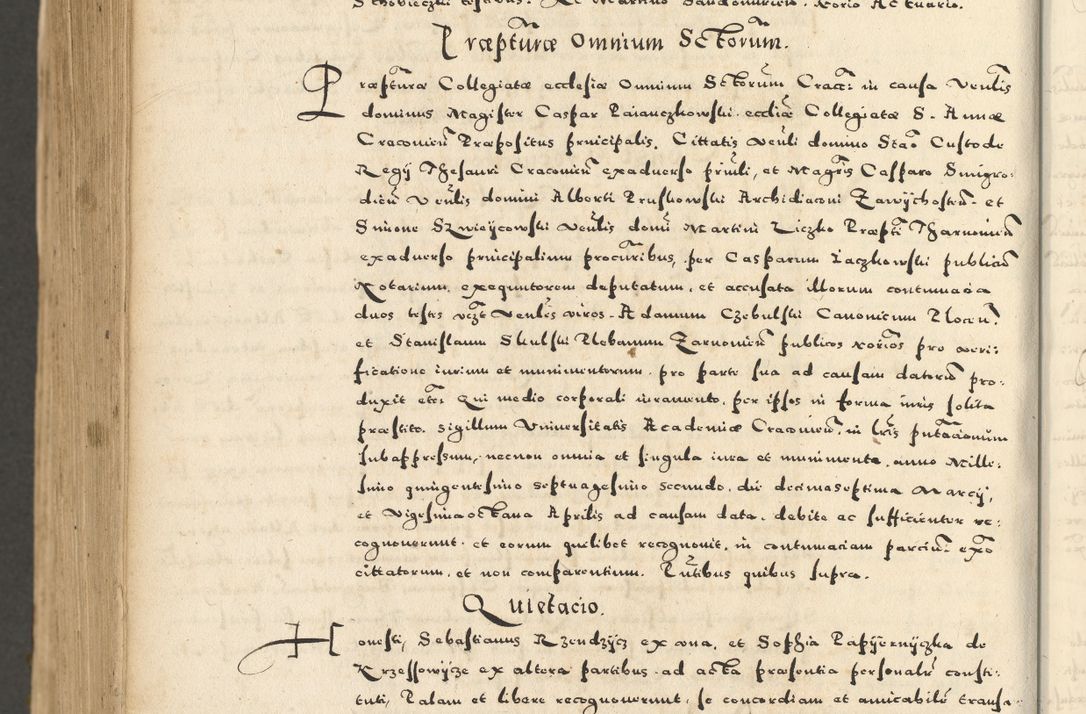 Præptūræ Omnium Sctorūm.
Præpturæ Collegiatæ ecclesiæ Omnium Sctorūm Cracc: in causa Venłis
dominus Magister Caspar Paianczkowski ecctiæ Collegiatæ S. Annæ
Cracouieñ Præpositus principalis. Cittatis Venłi domino Stao Custode
Regÿ Thesauri Cracouieñ exaduerso prinłi, et Magris Casparo Smigro:
dieñ Venłis domini Alberti Pruskowski Archidiaconi Zawÿchosteñ. et
Simone Szwieÿcowski Venłis domi Martini Liczko Præpti Tharnouieñ
exaduerso principalium procuribus, per Casparum Łaczkowski publicũ
Notarium, exequutorem deputatum, et accusata illorum contumacia
duos testes vczt Venłes viros. Adamum Czebulski Canonicum Ploceñ.
et Stanislaum Skulski Plebanum Zarnouieñ publicos norios pro veri:
ficatione iurium et munimentorum, pro parte sua ad causam datorũ pro:
duxit etc: Qui medio corporali iuramento, per ipsos in forma iuris solita
præstito, sigillum Vniuersitatis Academiæ Cracouieñ, in lris putacionum
subappressum, necnon omnia et singula iura et munimenta, anno Mille:
simo quingentesimo septuagesimo secundo, die decimaseptima Marcÿ,
et Vigesimaoctaua Aprilis ad causam data, debite ac sufficienter re:
cognouerunt, et eorum quilibet recognouit, in contumaciam parciũ exo
cittatorum, et non comparentium. Pñtibus quibus supra.
Quietacio.
Honesti, Sebastianus Rzendzÿcz ex vna, et Sophia Papÿernyczka de
Krzessowÿcze ex altera partibus ad acta præsentia personalr consti:
tuti, Palam et libere recognouerunt, se concordiam et amicabilẽ transa